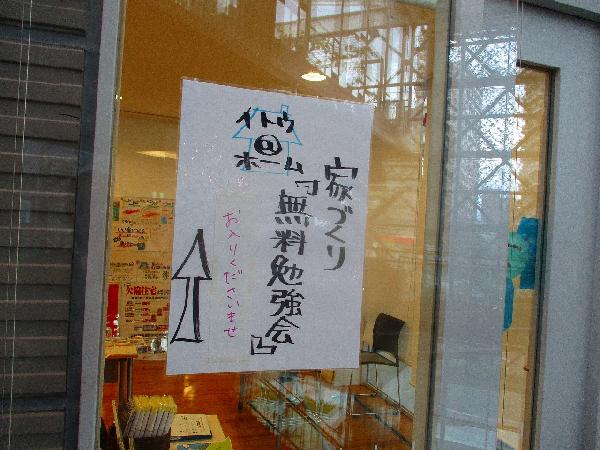 イトウ
@
ホーム
家づくり
「無料勉強会」
お入りくださいませ
欠陥住宅